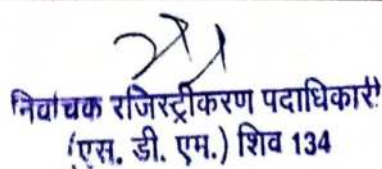 निर्वाचक रजिस्ट्रीकरण पदाधिकारी
(एस. डी. एम.) शिव 134